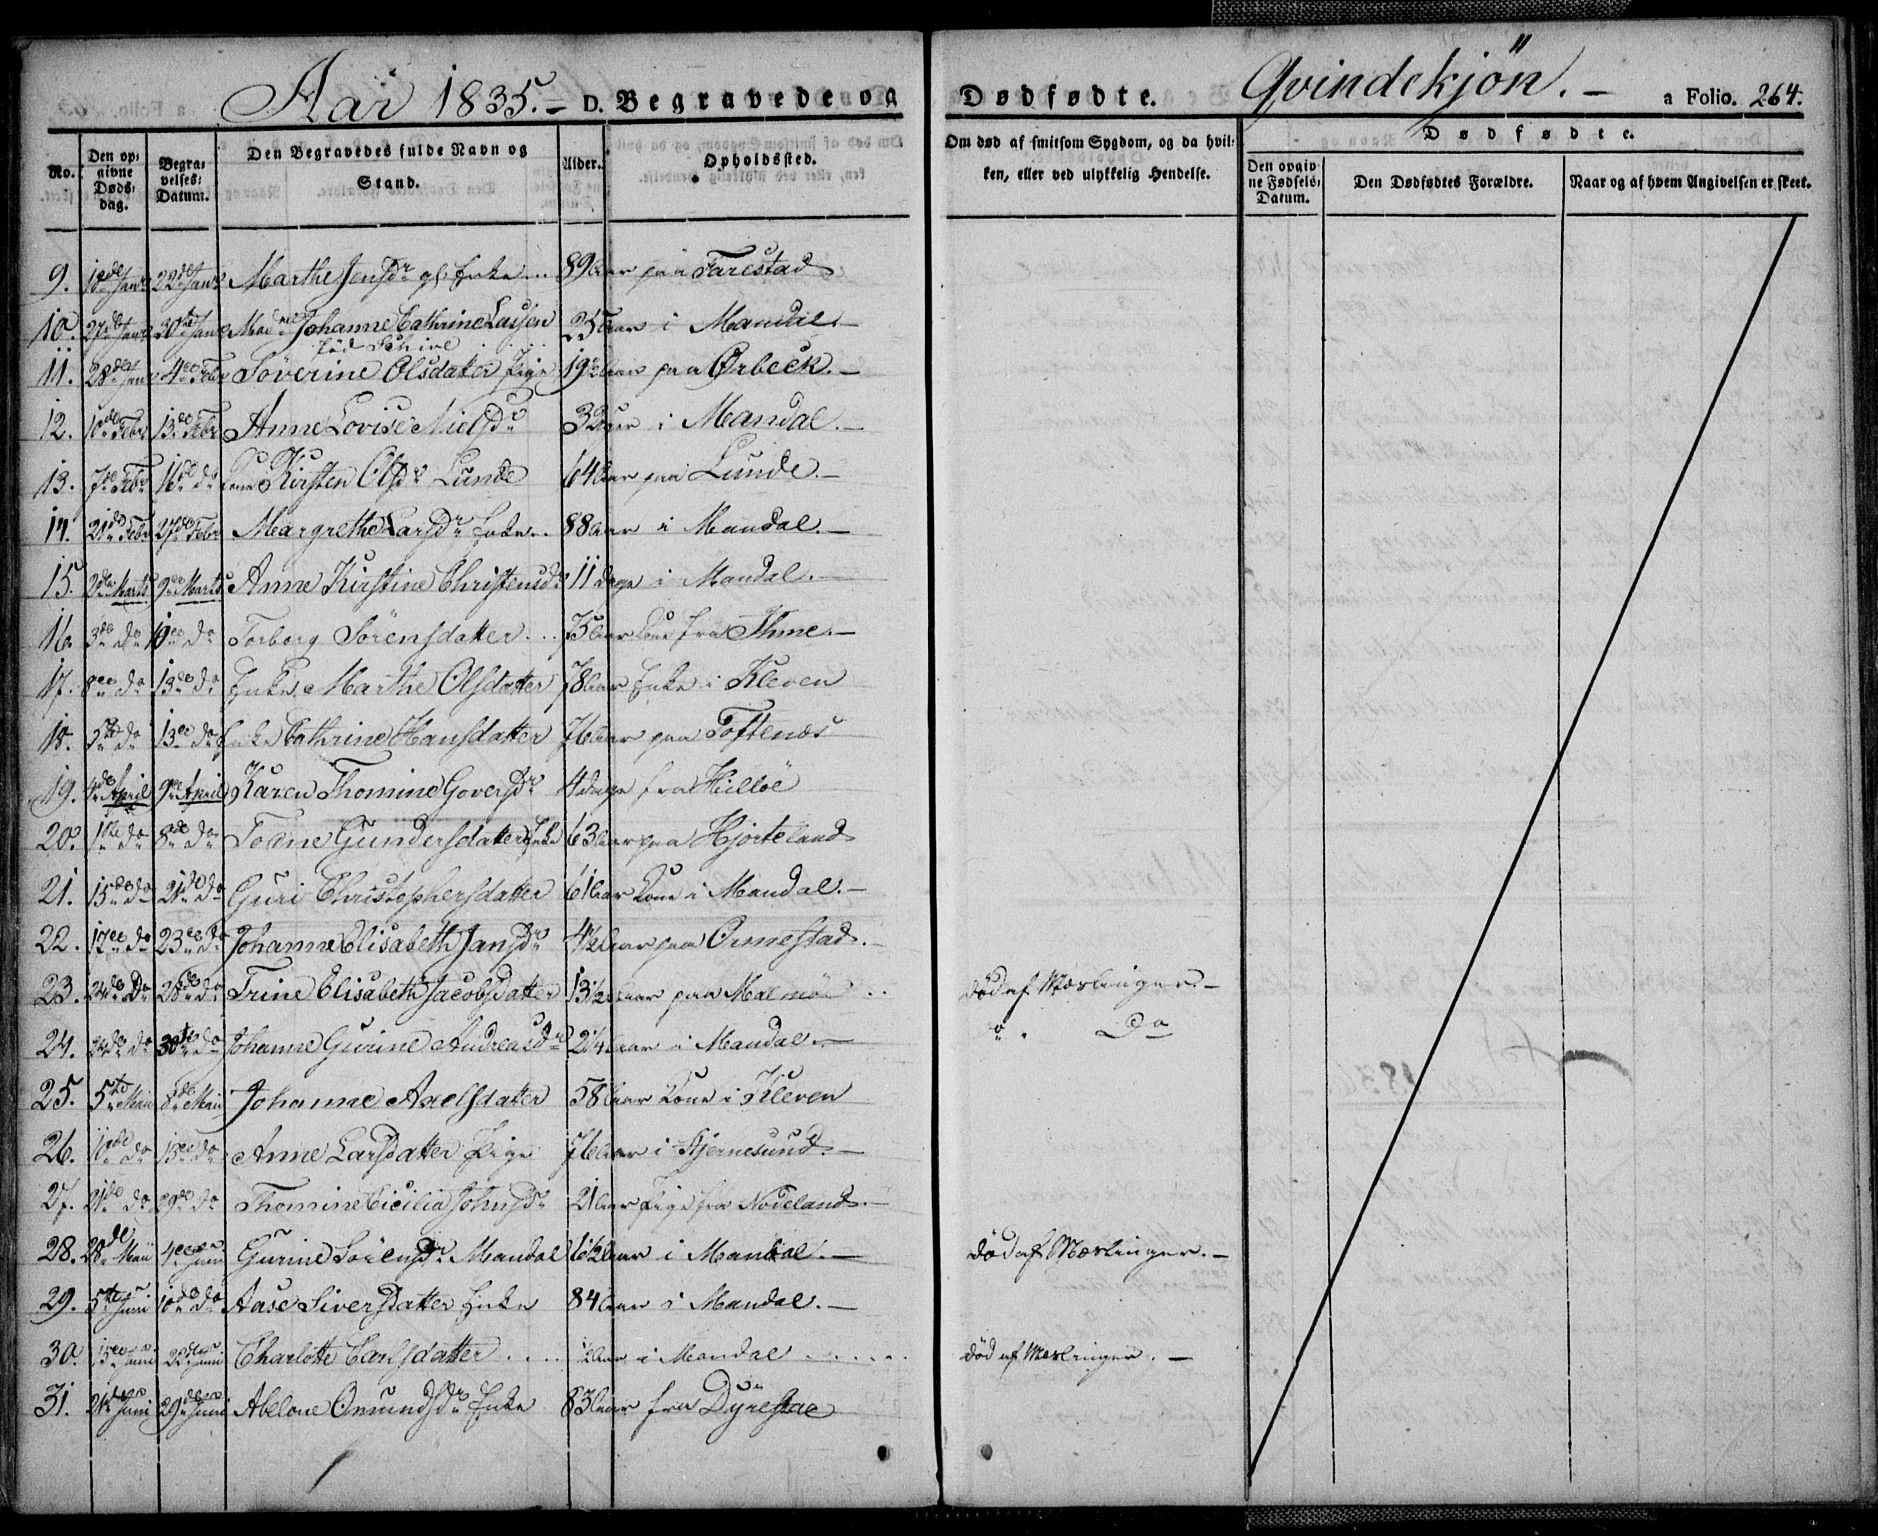 Aar 1835. – D. Begravede og Dødfødte. Qvindekjön. – a Folio. 264.
No.
Den opgivne Døds-dag.
Begravelses-Datum.
Den Begravedes fulde Navn og Stand.
Alder.
Opholdssted.
Om død af smitsom Sygdom, og da hvilken, eller ved ulykkelig Hendelse.
Dødfødte.
Den opgivne Fødsels-Datum.
Den Dødfødtes Forældre.
Naar og af hvem Angivelsen er skeet.
9. 18de Janr 22de Janr Marthe Jensdr gl. Enke 89 Aar paa Farestad
10. 27de Janr 30te Janr Madme Johanne Cathrine Lassen 35 Aar i Mandal. –
fød Schive
11. 28de Janr 4de Febr Söverine Olsdatter Pige 19½ Aar paa Ørbeck. –
12. 10de Febr 13de Febr Anne Lovise Nielsdr 32 Aar i Mandal. –
13. 7de Febr 16de do Kone Kirsten Olsdr Lunde 64 Aar paa Lunde. –
14. 21de Febr 27de Febr Margrethe Larsdr Enke 88 Aar i Mandal. –
15. 2den Marts 9de Marts Anne Kirstine Christensdr 11 dage i Mandal. –
16. 3de do 10de do Torborg Sörensdatter 75 Aar Kone fra Ihme. –
17. 8de do 13de do Enke Marthe Olsdatter 78 Aar Enke i Kleven
18. 5te do 13de do Enke Cathrine Hansdatter 76 Aar paa Toftenæs
19. 4de April 9de April Karen Thomine Goversdr 4 dage fra Hilloë
20. 1ste do 8de do Tolline Gundersdatter Enke 63 Aar paa Hjorteland
21. 15de do 21de do Guri Christophersdatter 61 Aar Kone i Mandal. –
22. 17de do 23de do Johanne Elisabeth Jansdr 4½ Aar paa Omestad. –
23. 24de Do 28de do Trine Elisabeth Jacobsdatter 13½ Aar paa Malmöe død af Mæslinger. –
24. 24de do 30te do Johanne Gurine Andreasdr 2¼ Aar i Mandal. – " " Do
25. 5te Maii 8de Maii Johanne Axelsdatter 58 Aar Kone i Kleven
26. 10de do 15de do Anne Larsdatter Pige 76 Aar i Skjernesund. –
27. 21de do 29de do Thomine Cicilia Johnsdr 21 Aar Pige fra Nodeland. –
28. 28de Maii 4de Juni Gurine Sörensdr Mandal 6½ Aar i Mandal. – død af Mæslinger. –
29. 5te Juni 10de do Aase Siversdatter Enke 84 Aar i Mandal. –
30. 15de Juni 22de Juni Charlotte Carlsdatter ½ Aar i Mandal død af Mæslinger. –
31. 21de Juni 29de Juni Abelone Omundsdr Enke 83 Aar fra Dyrestad